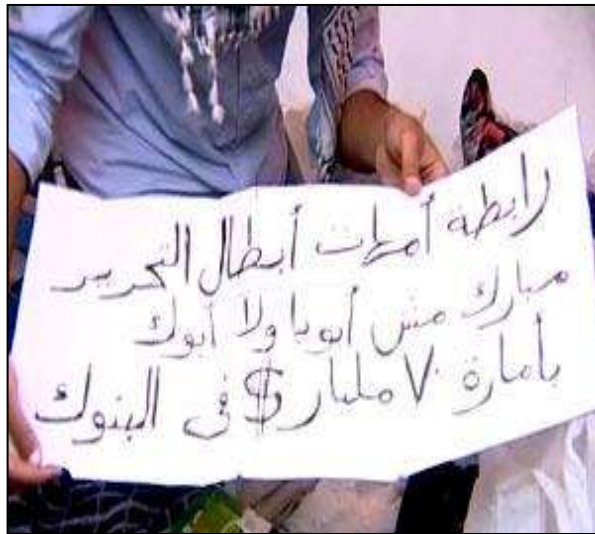 رابطة أمهات أبطال التحرير
مبارك مش أبويا ولا أبوك
بأمارة ٧٠ مليار $ فى البنوك